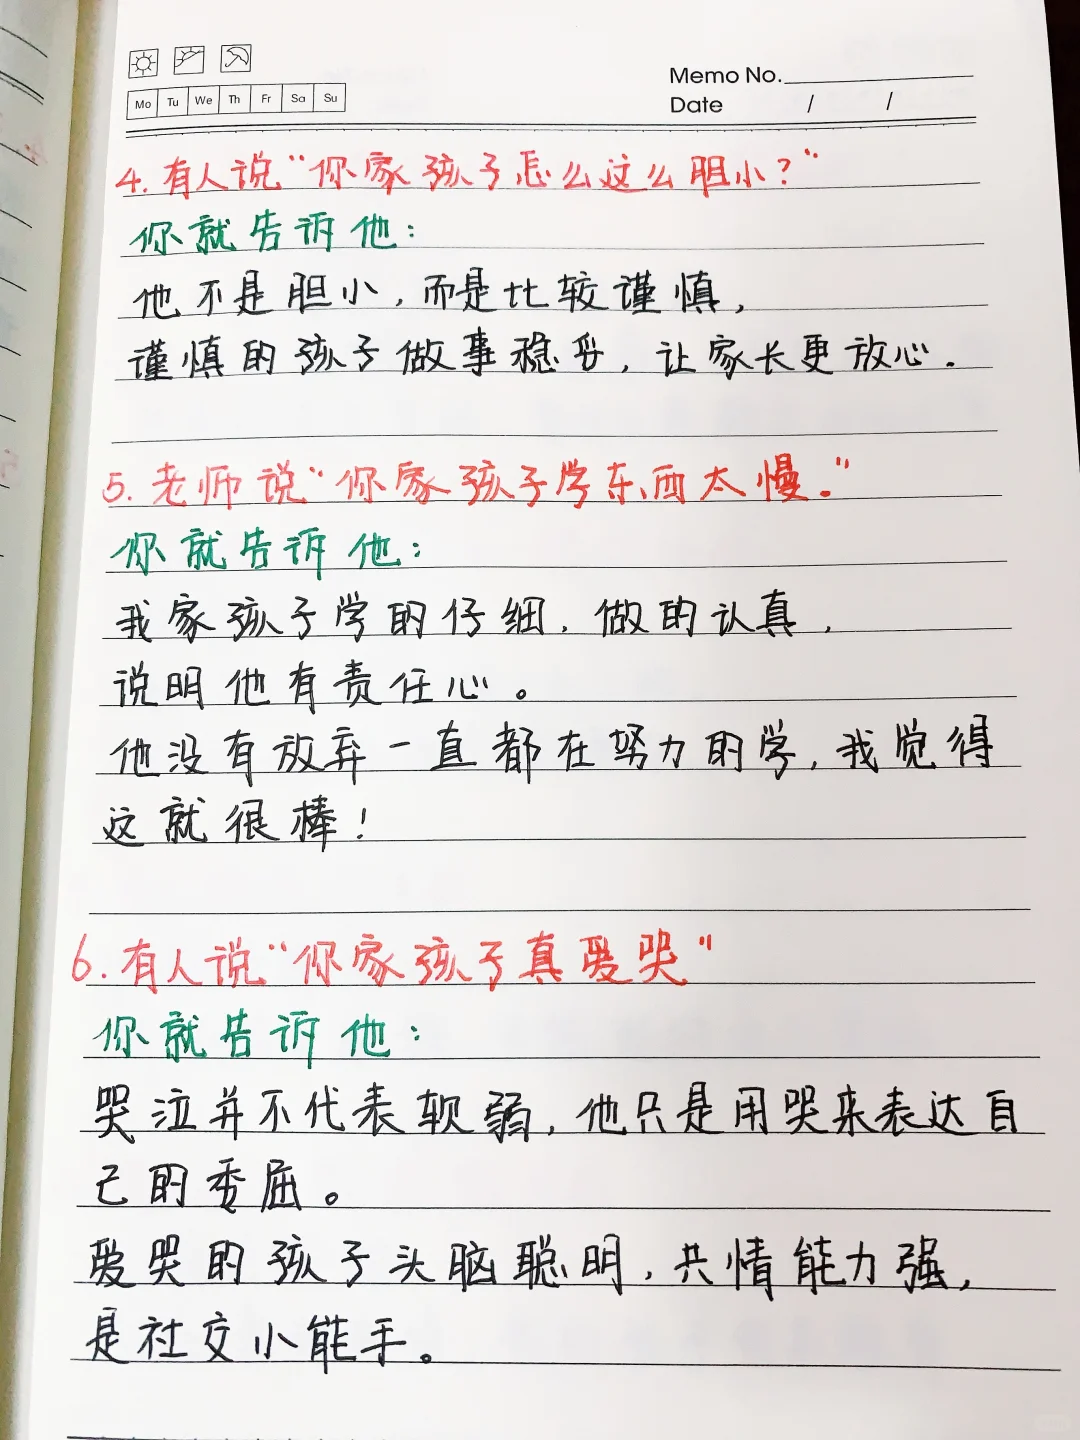 Mo Tu We Th Fr Sa Su
Memo No.
Date / /
4. 有人说“你家孩子怎么这么胆小?”
你就告诉他:
他不是胆小,而是比较谨慎,
谨慎的孩子做事稳妥,让家长更放心.
5. 老师说“你家孩子学东西太慢.”
你就告诉他:
我家孩子学的仔细.做的认真,
说明他有责任心。
他没有放弃一直都在努力的学,我觉得
这就很棒!
6. 有人说“你家孩子真爱哭”
你就告诉他:
哭泣并不代表软弱,他只是用哭来表达自
己的委屈。
爱哭的孩子头脑聪明,共情能力强,
是社交小能手。